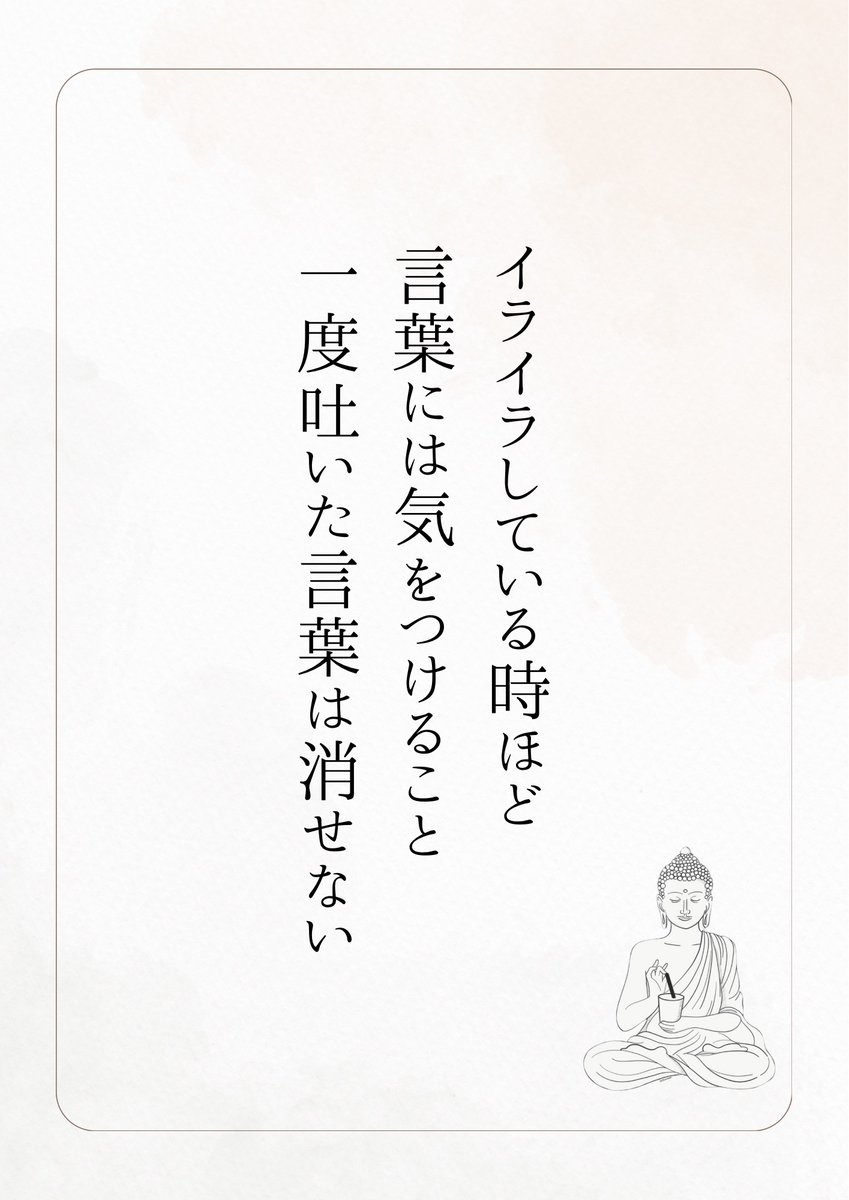 イライラしている時ほど
言葉には気をつけること
一度吐いた言葉は消せない